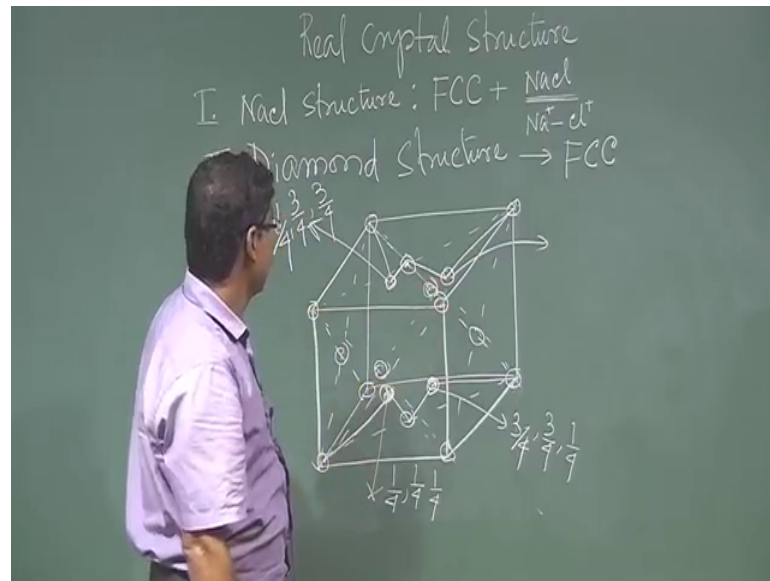 Real Cryptal Structure
I. Nacl Structure: FCC + Nacl
Na⁺-cl⁺
Diamond Structure → FCC
1/4, 3/4, 3/4
3/4, 3/4, 1/4
1/4, 1/4 1/4